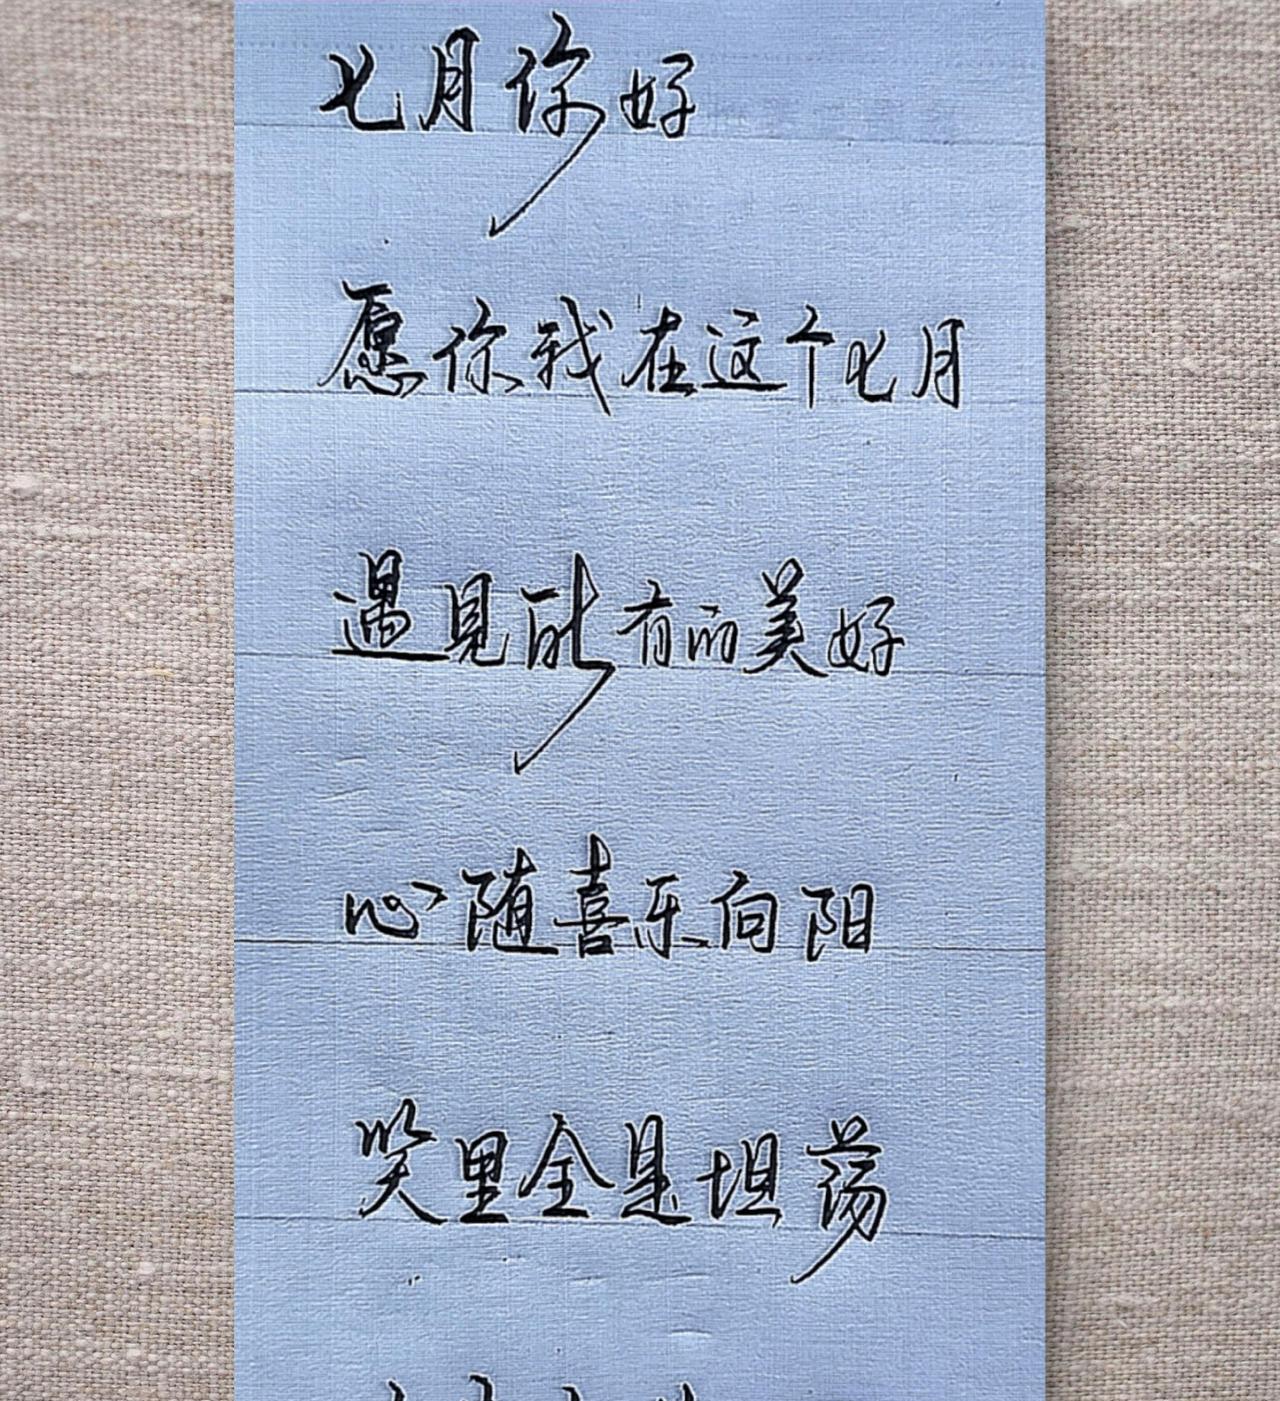 七月你好
愿你我在这个七月
遇见所有的美好
心随喜乐向阳
笑里全是坦荡